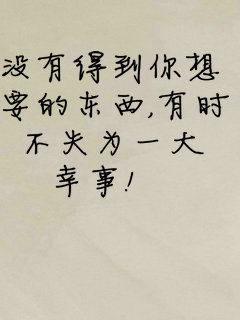 没有得到你想
要的东西,有时
不失为一大
幸事!